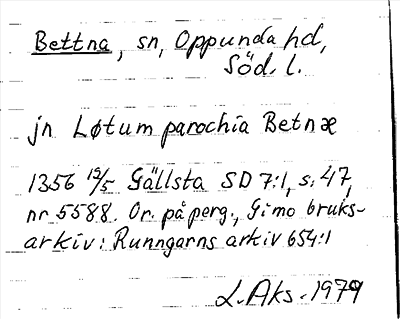 Bettna, sn, Oppunda hd,
Söd. l.
jn Løtum parochia Betnæ
1356 12/5 Gällsta SD 7:1, s. 47,
nr 5588. Or. på perg., Gimo bruks-
arkiv: Runngarns arkiv 654:1
L. Aks. 1979